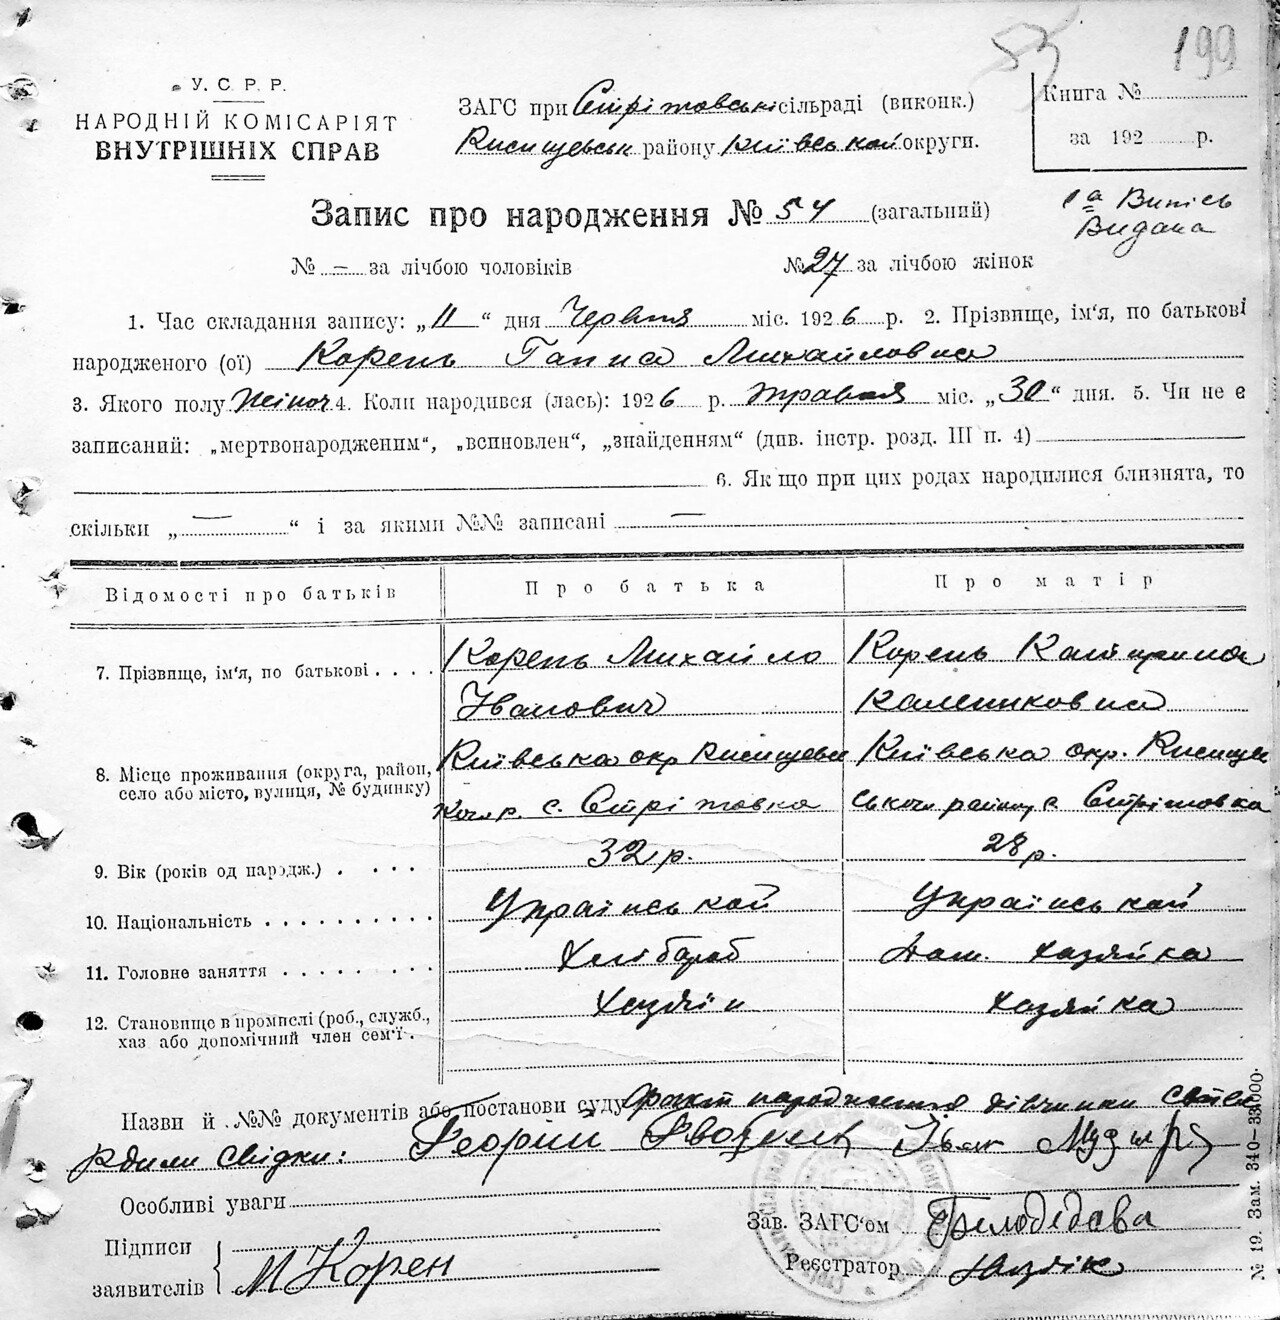 199
У. С. Р. Р.
НАРОДНІЙ КОМІСАРІЯТ
ВНУТРІШНІХ СПРАВ
ЗАГС при Стрітовські сільраді (виконк.)
району Київської округи.
Книга №
за 192 р.
1а Випись
Видана
Запис про народження № 54 (загальний)
№ – за лічбою чоловіків № 27 за лічбою жінок
1. Час складання запису: „11“ дня Червня міс. 1926 р. 2. Прізвище, ім'я, по батькові
народженого (ої) Корень Ганна Михайловна
3. Якого полу жіноч 4. Коли народився (лась): 1926 р. травня міс. „30“ дня. 5. Чи не є
записаний: „мертвонародженим“, „всиновлен“, „знайденням“ (див. інстр. розд. III п. 4)
6. Як що при цих родах народилися близнята, то
скільки „—“ і за якими №№ записані —
Відомості про батьків Про батька Про матір
7. Прізвище, ім'я, по батькові . . . . Корень Михайло Корень Катерина
Іванович Калениковна
8. Місце проживання (округа, район, Київська окр Київська окр.
село або місто, вулиця, № будинку) р. с. Стрітовка ського району с Стрітовка
9. Вік (років од народж.) . . . . 32 р. 28 р.
10. Національність . . . . . . . . . . Української Української
11. Головне заняття . . . . . . . . Хлібороб Дом. хазяйка
12. Становище в промислі (роб., служб., Хазяїн хазяйка
хаз або допомічний член сем'ї .
Назви й №№ документів або постанови суду факт народження дівчинки ствер
рдили свідки: Георгій Іван
Особливі уваги
Підписи
заявителів
М Корен
Зав. ЗАГС'ом Білодедова
Реєстратор
№ 19. Зам. 340—33000.